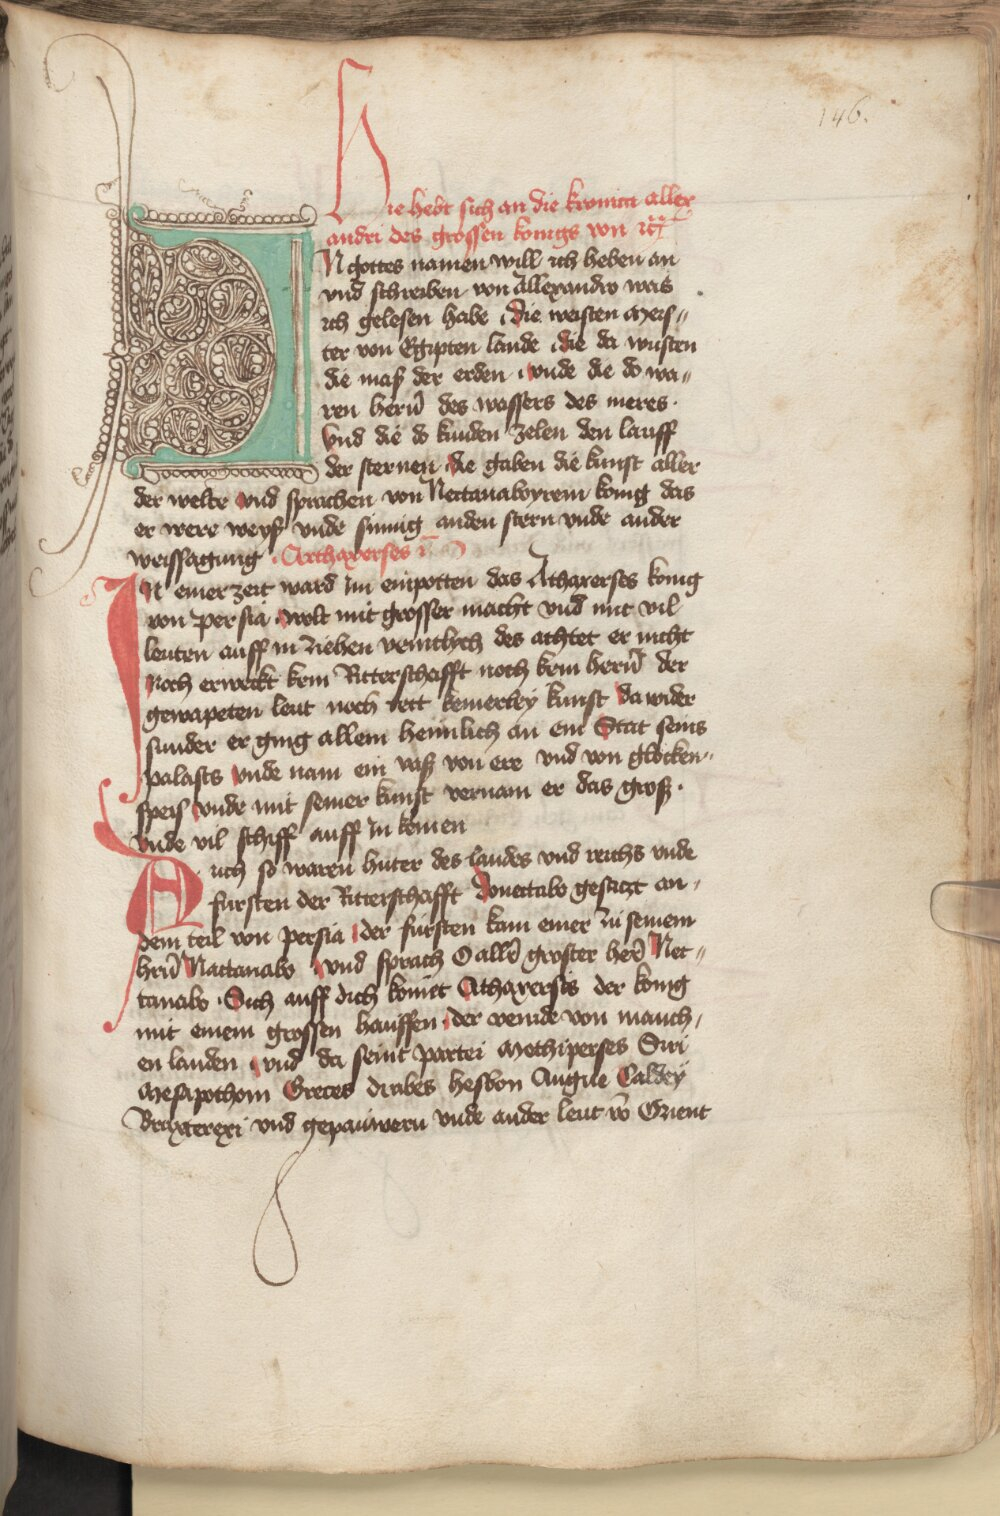 146.
Hie hebt sich an die kronica allex
andri des grossen konigs von
IN gottes namen will ich heben an
vnd schreiben von Allexandro was
ich gelesen habe die weisten Meis„
ter von Egipten lande die da wusten
die maß der erden vnde die do wa„
ren herñ des wassers des meres ·
Vnd die do kunden zelen den lauff
der sternen die gaben die kunst aller
der welte vnd sprachen von Nectanaboyrem konig das
er were weyß vnde sinnig anden stern vnde ander
weissagung · Arthaxerses
IN einer zeit ward Im enpotten das Athaxerses konig
von Persia wolt mit grosser macht vnd mit vil
leuten auff in ziehen veintlych des achtet er nicht
Noch erweckt kein Ritterschafft noch kein herñ der
gewapeten leut noch rett keinerley kunst da wider
sunder er ging allein heimlich an ein Stat seins
palasts vnde nam ein vaß von ere vnd von glocken„
speis vnde mit seiner kunst vernam er das groß ·
vnde vil schiff auff In komen
Auch so waren huter des landes vnd reichs vnde
fursten der Ritterschafft Donectabo gesaczt an
dem teil von persia der fursten kam einer zu seinem
hrñ Nattanabo vnd sprach O alle groster here Nec„
tanabo · Sich auff dich komet Athaxerses der konig
mit einem grossen hauffen der veinde von manch
en landen vnd da seint partei Methiperses Siri
Mesapothom Greces Arabes hesbon Augne Caldey
Braxterexi vnd gepauwern vnde ander leut võ Orient